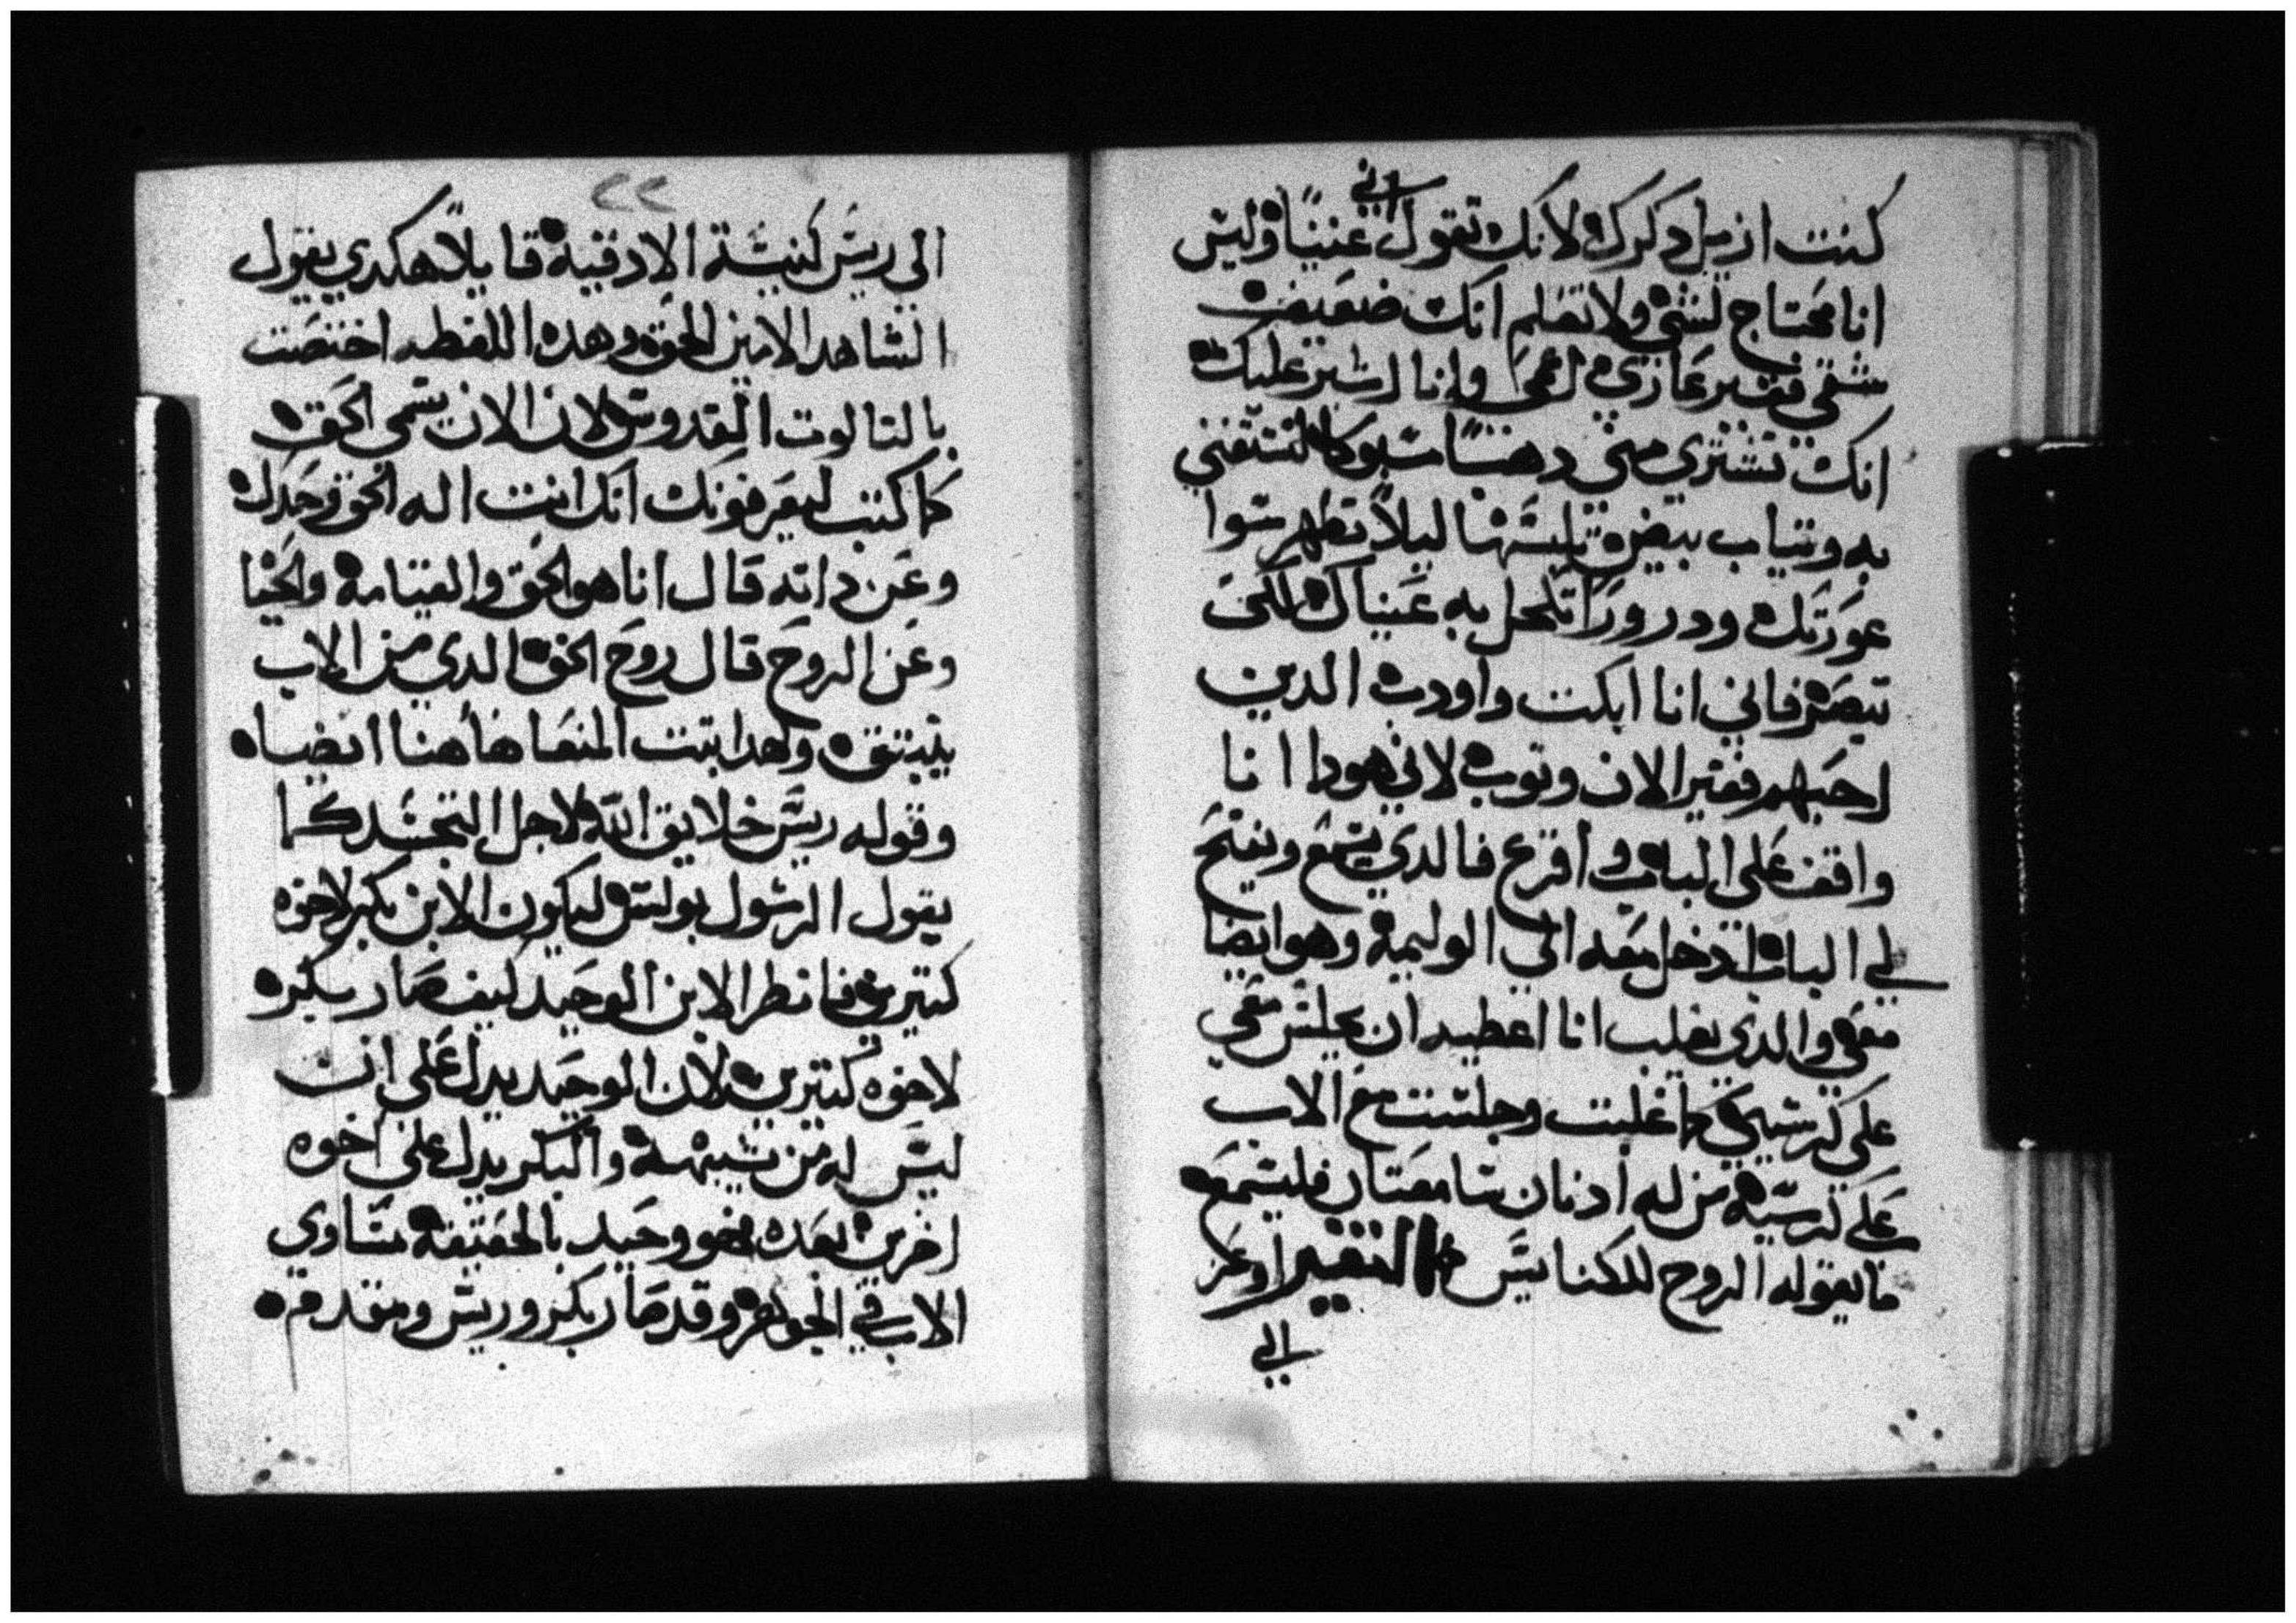 اني
كنت ازيل دكرك لانك تقول غنيًا وليس
انا محتاج لشي ولا تعلم انك ضعيف
شقي فقير عازي اعمى وانا اشير عليك
انك تشتري مني دهبًا مسبوكا لتستغني
به وتياب بيض تلبسها ليلًا تظهر سوا
عورتك ودرورًا تكحل به عيناك لكي
تبصر فاني انا ابكت واودب الدين
احبهم فغير الان وتوب لاني هودا انا
واقف على الباب واقرع فالدي يسمع ويفتح
لي الباب ادخل معه الي الوليمة وهو ايضا
معي والدي يغلب انا اعطيه ان يجلس معي
علي كرسيي كما غلبت وجلست مع الاب
علي كرسيه من له ادنان سامعتان فليسمع
ما يقوله الروح للكنايس التفسير اوعز
الي
٢٢
الى ريس كنيسة الادقية قايلًا هكدي يقول
الشاهد الامين الحق وهده اللفظه اختصت
بالتالوت القدوس لان الان يسمى الحق
كما كتب ليعرفونك انك انت اله الحق وحدك
وعن داته قال انا هو الحق والقيامة والحيا
وعن الروح قال روح الحق الدي من الاب
ينبتق وهدا بتت المنعا هاهنا ايضا
وقوله ريس خلايق الله لاجل التجسد كما
يقول الرسول بولس ليكون الابن بكر لاخوه
كتيرين فانظر الابن الوحيد كيف صار بكره
لاخوه كتيرين لان الوحيد يدل على ان
ليس له من يشبهه والبكر يدل على اخوه
اخرين بعده فهو وحيد بالحقيقة مساوي
الاب في الجوهر وقد صار بكر وريس ومتقدم